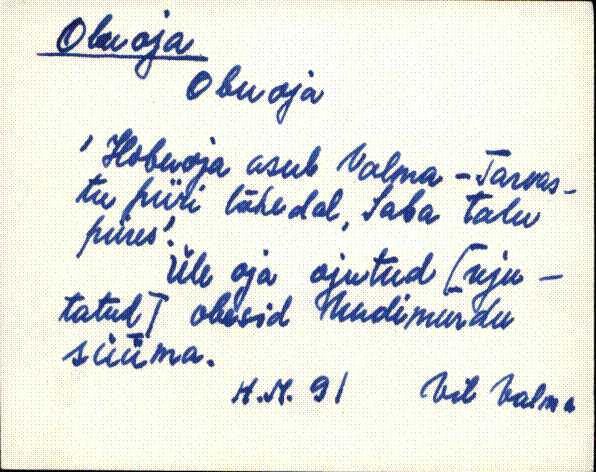 Obuoja
Obuoja
'Hobuoja asub Valma - Tarvas-
tu piiri lähedal, Saba talu
piires'.
Üle oja ajutud [uju-
tatud] obesid Mudimurdu
süüma.
H.M. 91 Vil Valma